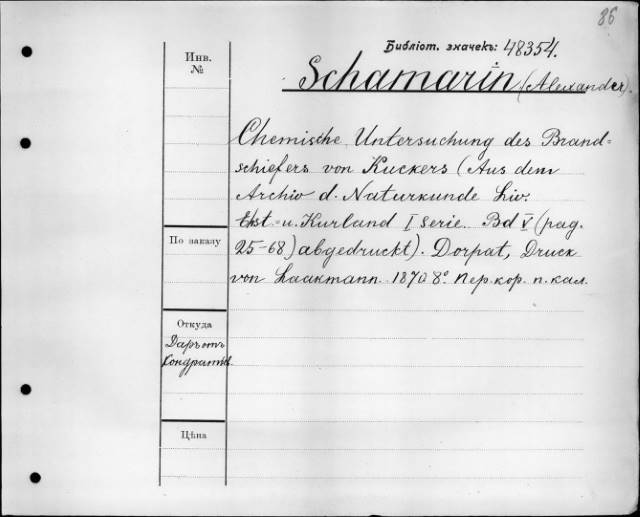 86
Библіот. значекъ: 48354.
Инв.
№
Schamarin (Alexander).
Chemische Untersuchung des Brand=
schiefers von Kuckers (Aus dem
Archiv d. Naturkunde Liv.
Ehst= u. Kurland I Serie. Bd V (pag.
25-68) abgedruckt). Dorpat, Druck
von Laakmann. 1870 8° Пер. кор. п. кал.
По заказу
Откуда
Даръ отъ
Цѣна